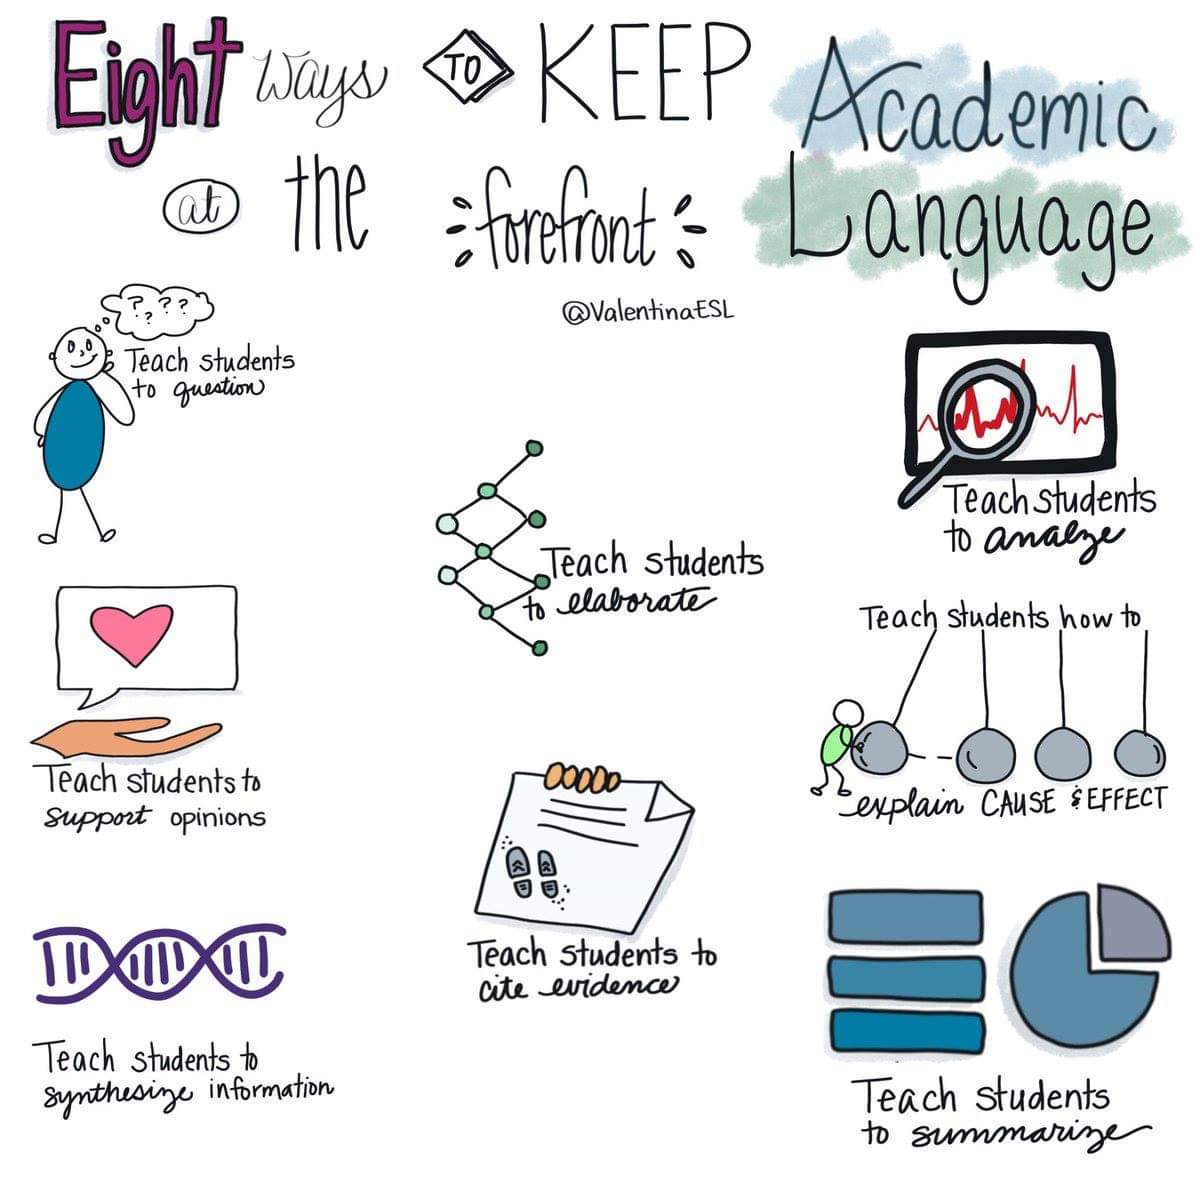 Eight Ways TO KEEP Academic
at the forefront Language
@ValentinaESL
? ? ?
? ?
Teach students
to question
Teach students to
support opinions
Teach students to
synthesize information
Teach students
to elaborate
Teach students to
cite evidence
Teach students
to analze
Teach students how to
explain CAUSE & EFFECT
Teach students
to summarize